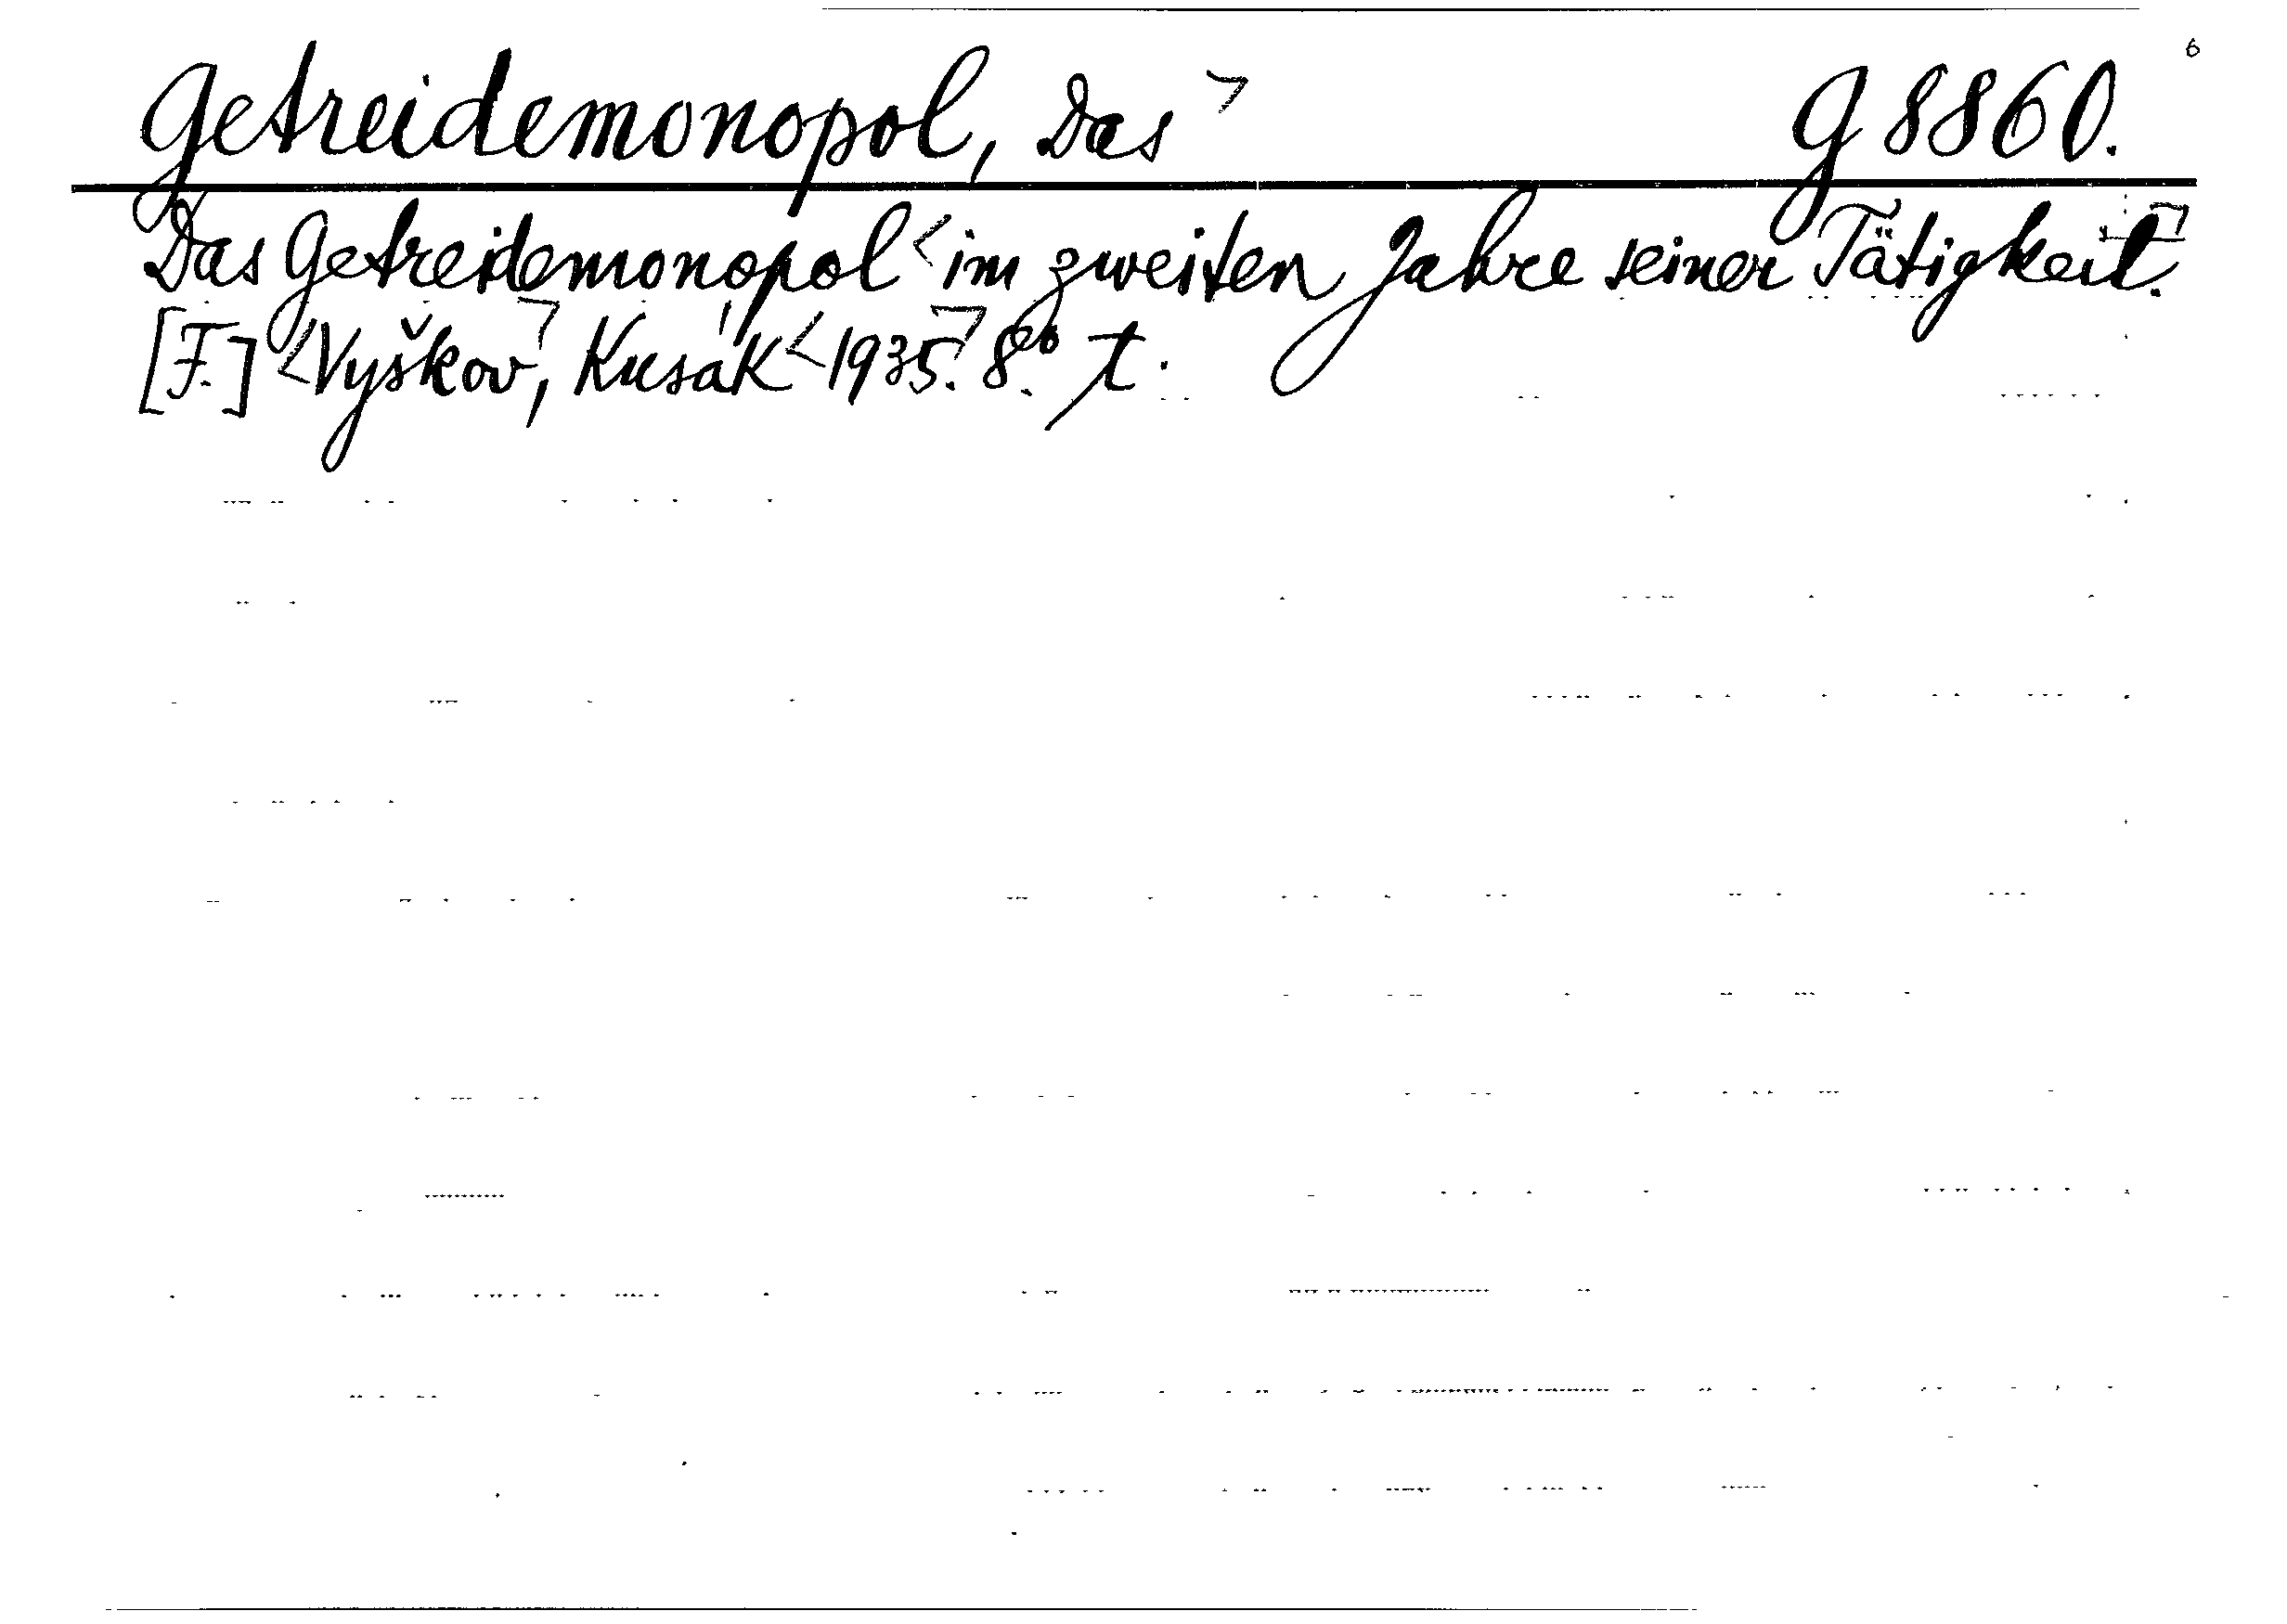 Getreidemonopol, Das G 8860. 6
Das Getreidemonopol im zweiten Jahre seiner Tätigkeit.
[F.] Vyškov, Kusák 1935. 8° t.